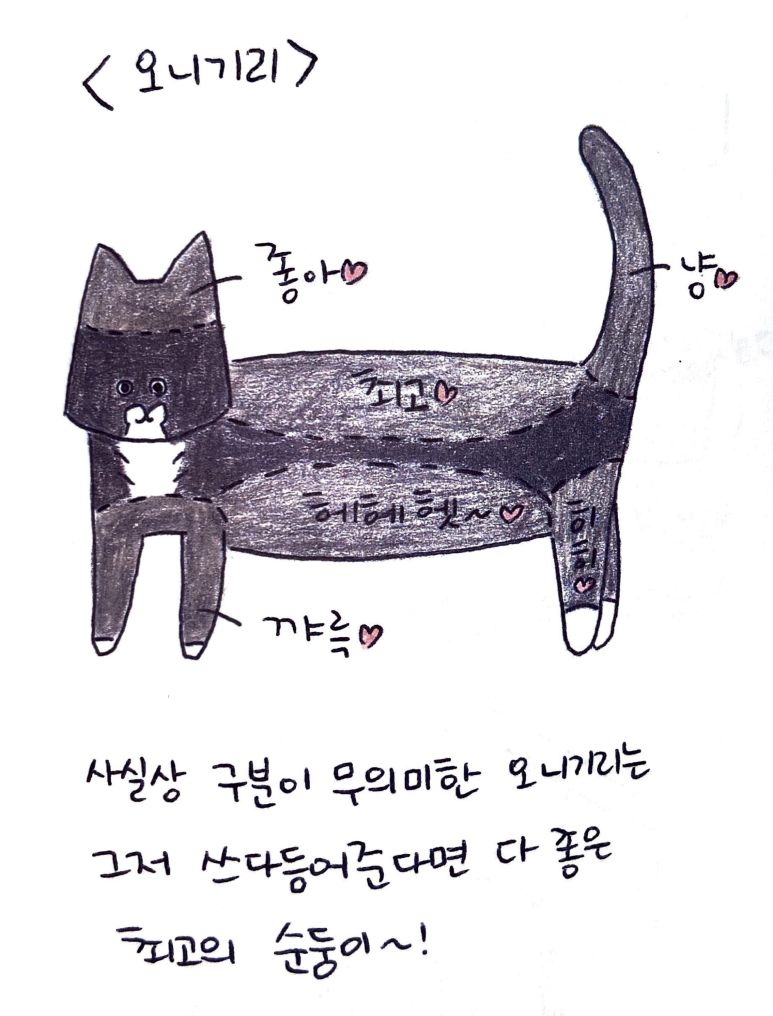 <오니기리>
죻아♡
냥♡
최고♡
헤헤헿~♡
히힣♡
꺄륵♡
사실상 구분이 무의미한 오니기리는
그저 쓰다듬어준다면 다 좋은
최고의 순둥이~!